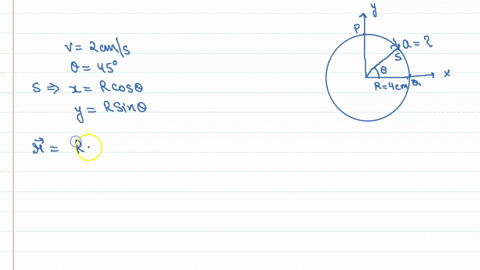 v = 2cm/s
θ = 45°
S ⇒ x = Rcosθ
y = RSinθ
r⃗ = R.
y
P
a = ?
S
θ
x
R=4cm
Q